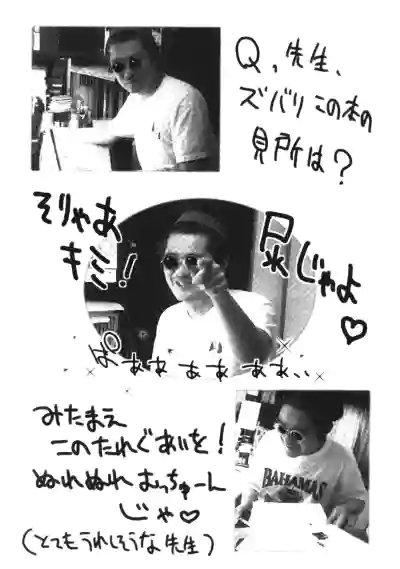 Q、先生、
ズバリこの本の
見所は?
そりゃあ
キミ!
尿じゃよ♡
ぱぁぁぁぁぁぁ…
みたまえ
このたれぐあいを!
ぬれぬれむっちゅーん
じゃ♡
BAHAMAS
(とてもうれしそうな先生)